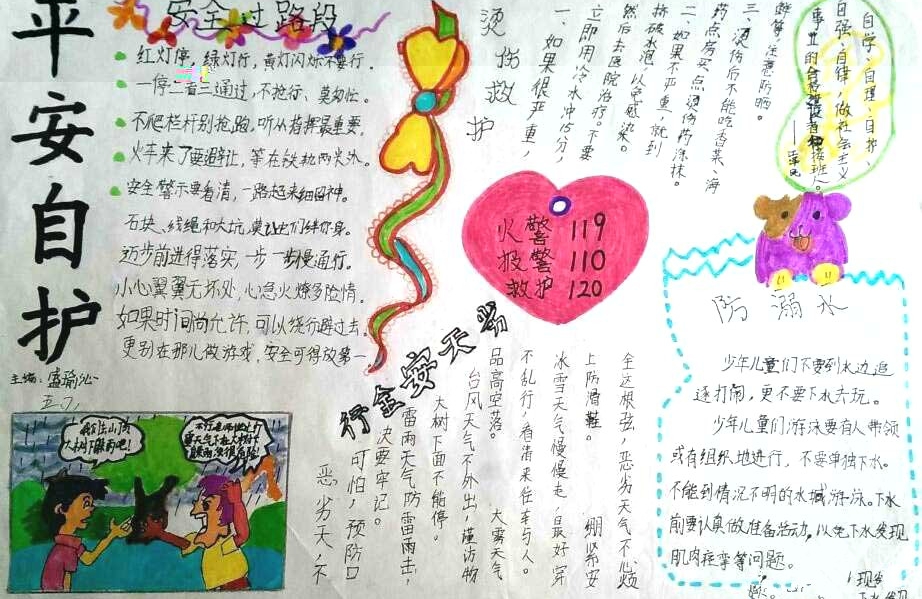 平安自护
主编：盛瑜沁
五.7.
安全过路段
红灯停，绿灯行，黄灯闪烁不要行.
一停二看三通过，不抢行、莫匆忙。
不爬栏杆别抢跑，听从指挥最重要，
火车来了要避让，等在铁轨两米外。
安全警示要看清，一路起来细留神。
石块、线绳和大坑，莫让它们绊你身。
迈步前进得落实，一步一步慢通行。
小心翼翼无坏处，心急火燎多险情.
如果时间尚允许，可以绕行避过去。
更别在那儿做游戏，安全可得放第一
烫伤救护
一、如果很严重，
立即用冷水冲15分，
然后去医院治疗。不要
挤破水泡，以免感染。
二、如果不严重，就到
药店房买点烫伤药涂抹。
三、烫伤后不能吃香菜、海
鲜等，注意防晒。
自学、自理、自护、
自强、自律，做社会主义
事业的合格建设者和接班人。
火警 119
报警 110
救护 120
恶劣天气安全行
恶劣天，不
可怕，预防口
决要牢记。
雷雨天气防雷雨击，
大树下面不能停。
台风天气不外出，谨访物
品高空落。 大雾天气
不乱行，看清来往车与人。
冰雪天气慢慢走，最好穿
上防滑鞋。 绷紧安
全这根弦，恶劣天气不心烦
防溺水
少年儿童们不要到水边追
逐打闹，更不要下水去玩。
少年儿童们游泳要有人带领
或有组织地进行，不要单独下水。
不能到情况不明的水域游泳。下水
前要认真做准备活动，以免下水发现
肌肉痉挛等问题。
我们去山顶
大树下躲雨吧！